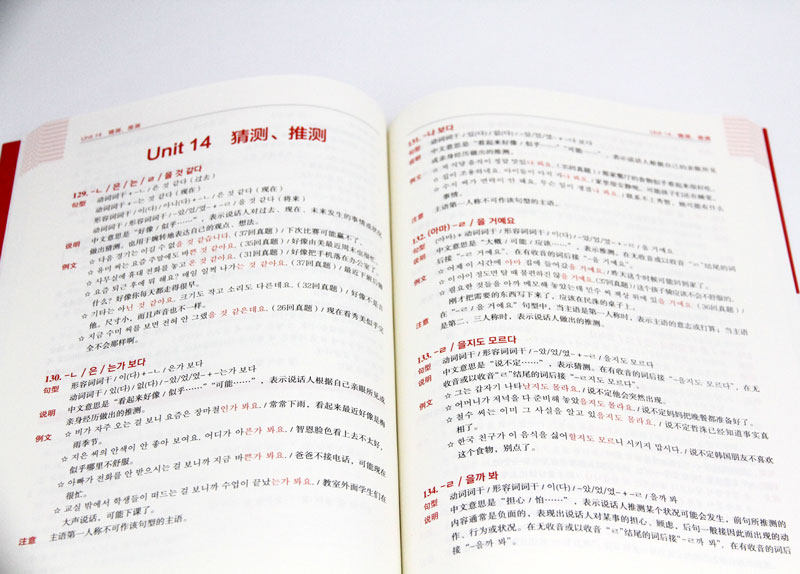 Unit 14 猜测、推测
Unit 14 猜测、推测
129. -ㄴ / 은 / 는 / ㄹ / 을 것 같다
句型 动词词干+-ㄴ / 은 것 같다（过去）
动词词干+-는 것 같다（现在）
形容词词干 / 이(다) / 아니(다)+-ㄴ / 은 것 같다（现在）
动词词干 / 形容词词干 / 이(다) / -았/었/였-+-ㄹ / 을 것 같다（将来）
说明 中文意思是“好像 / 似乎……”，表示说话人对过去、现在、未来发生的事情或状况
做出猜测，也用于婉转地表达自己的观点、想法。
例文 ☆ 다음 경기는 이길 수 없을 것 같습니다.（37回真题）/ 下次比赛可能赢不了。
☆ 요즘 퇴근 후에 뭐 해요? 매일 일찍 나가는 것 같아요.（37回真题）/ 最近下班后做
什么？好像你每天都走得很早。
☆ 기타는 아닌 것 같아요. 크기도 작고 소리도 다른데요.（32回真题）/ 好像不是吉
他。尺寸小，而且声音也不一样。
☆ 지금 수미 씨를 보면 전혀 안 그랬을 것 같은데요.（26回真题）/ 现在看秀美似乎完
全不会那样啊。
130. -ㄴ / 은 / 는가 보다
句型 形容词词干 / 이(다)+-ㄴ / 은가 보다
动词词干 / 있(다) / 없(다) / -았/었/였-+-는가 보다
说明 中文意思是“看起来好像 / 似乎……”“可能……”，表示说话人根据自己亲眼所见或
亲身经历做出的推测。
例文 ☆ 비가 자주 오는 걸 보니 요즘은 장마철인가 봐요. / 常常下雨，看起来最近好像是梅
雨季节。
☆ 지은 씨의 안색이 안 좋아 보여요. 어디가 아픈가 봐요. / 智恩脸色看上去不太好，
似乎哪里不舒服。
☆ 아빠가 전화를 안 받으시는 걸 보니까 지금 바쁜가 봐요. / 爸爸不接电话，可能现在
很忙。
☆ 교실 밖에서 학생들이 떠드는 걸 보니까 수업이 끝났는가 봐요. / 教室外面学生们在
大声说话，可能下课了。
注意 主语第一人称不可作该句型的主语。
Unit 14 猜测、推测
131. -나 보다
句型 动词词干 / 있(다) / 없(다) / -았/었/였-+-나 보다
说明 中文意思是“看起来好像 / 似乎……”“可能……”，表示说话人根据自己的亲眼所见
或亲身经历做出的推测。
事情。
注意 主语第一人称不可作该句型的主语。
132. (아마) -ㄹ / 을 거예요
句型 动词词干 / 形容词词干 / 이(다) / -았/었/였-+-ㄹ / 을 거예요
说明 中文意思是“大概 / 可能 / 应该……”，表示推测。在无收音或以收音“ㄹ”结尾的词
后接“-ㄹ 거예요”，在有收音的词后接“-을 거예요”。
例文 ☆ 어제 이 시간에 아마 집에 들어갔을 거예요. / 昨天这个时候可能回到家了。
☆ 이 아이 정도면 탈 때 불편하진 않을 거예요.（35回真题）/ 这个孩子骑应该不会不舒服的。
☆ 필요한 것들을 아까 메모해 놓았는데 민수 씨 책상 위에 있을 거예요.（36回真题）/
刚才把需要的东西写下来了，应该在民洙的桌子上。
注意 在“-ㄹ / 을 거예요”句型中，当主语是第一人称时，表示主语的意志或打算；当主语
是第二、三人称时，表示说话人做出的推测。
133. -ㄹ / 을지도 모르다
句型 动词词干 / 形容词词干 / 이(다) / -았/었/였-+-ㄹ / 을지도 모르다
说明 中文意思是“说不定……”，表示猜测。在有收音的词后接“-을지도 모르다”，在无
收音或以收音“ㄹ”结尾的词后接“-ㄹ지도 모르다”。
例文 ☆ 그는 갑자기 나타날지도 몰라요. / 说不定他会突然出现。
☆ 어머니가 저녁을 다 준비해 놓았을지도 몰라요. / 说不定妈妈把晚餐都准备好了。
☆ 철수 씨는 이미 그 사실을 알고 있을지도 몰라요. / 说不定哲洙已经知道事实真
相了。
☆ 한국 친구가 이 음식을 싫어할지도 모르니 시키지 맙시다. / 说不定韩国朋友不喜欢
这个食物，别点了。
134. -ㄹ / 을까 봐
句型 动词词干 / 形容词词干 / 이(다) / -았/었/였-+-ㄹ / 을까 봐
说明 中文意思是“担心 / 怕……”，表示说话人推测某个状况可能会发生，前句所推测的
内容通常是负面的，表现出说话人对某事的担心、顾虑，后句一般接因此而出现的动
作、行为或状况。在无收音或以收音“ㄹ”结尾的词后接“-ㄹ까 봐”，在有收音的词后
接“-을까 봐”。